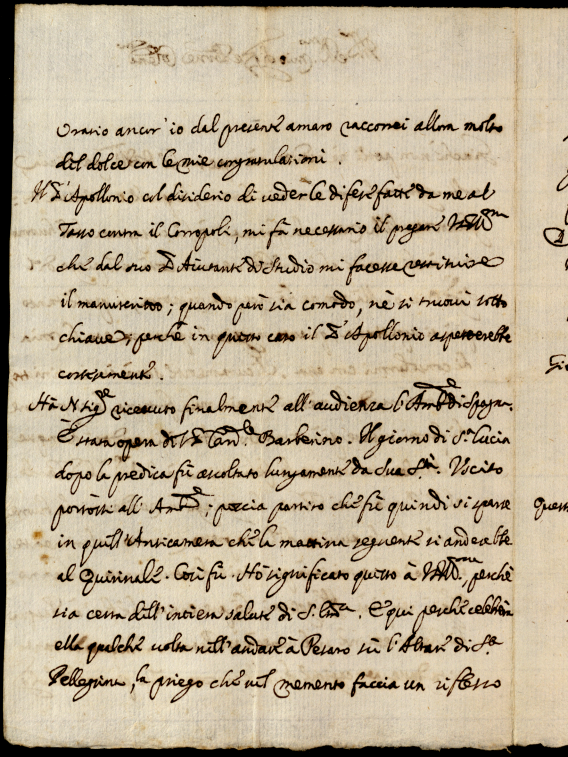 Orario ancor' io dal presente amaro raccorrei allora molto
del dolce con le mie congratulationi.
Il S.r Apollonio col disiderio di veder le difese fatte da me al
Tasso contra il Corropoli, mi fà necessario il pregare
che dal suo S.r Aiutante di Studio mi facesse restituire
il manuscritto; quando però sia comodo, nè si truovi sotto
chiave; perchè in questo caso il S.r Apollonio aspetterebbe
cortesemente.
Hà N. Sig.re ricevuto finalmente all'audienza l'Amb.re di Spagna.
È stata opera di Card.le Barberino. Il giorno di S.ta Lucia
dopo la predica fù ascoltato lungamente da Sua S.tà. Uscito
portossi all' Amb.re; poscia partito che fù quindi si sparse
in quell'Anticamera che la mattina seguente si anderebbe
al Quirinale. Così fù. Hò significato questo à perchè
sia certa dell'intiera salute di S. E qui perchè celebrerà
ella qualche volta nell'andare à Pesaro sù l'Altare di S.a
Pellegrina, la priego che nel memento faccia un riflesso